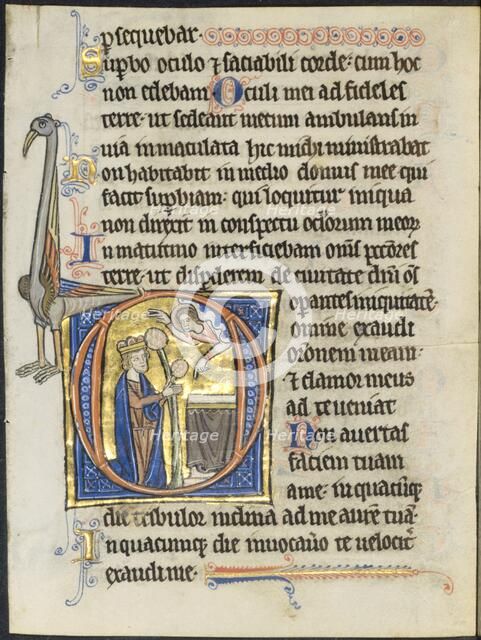 psequebar.
Supbo oculo & saciabili corde: cum hoc
non edebam. Oculi mei ad fideles
terre: ut sedeant mecum ambulans in
via inmaculata hic michi ministrabat
Non habitabit in medio domus mee qui
facit supbiam: qui loquitur iniqua
non direxit in conspectu oclorum meor
In matutino interficiebam oms pctores
terre: ut disperderem de civitate dni os
operantes iniquitate
Domine exaudi
oronem meam:
& clamor meus
ad te veniat
Non avertas
faciem tuam
a me: in quacuq
die tribulor inclina ad me aure tua
In quacumq die invocavo te velocit
exaudi me.
Heritage
Heritage
Heritage
Heritage
Heritage
Heritage